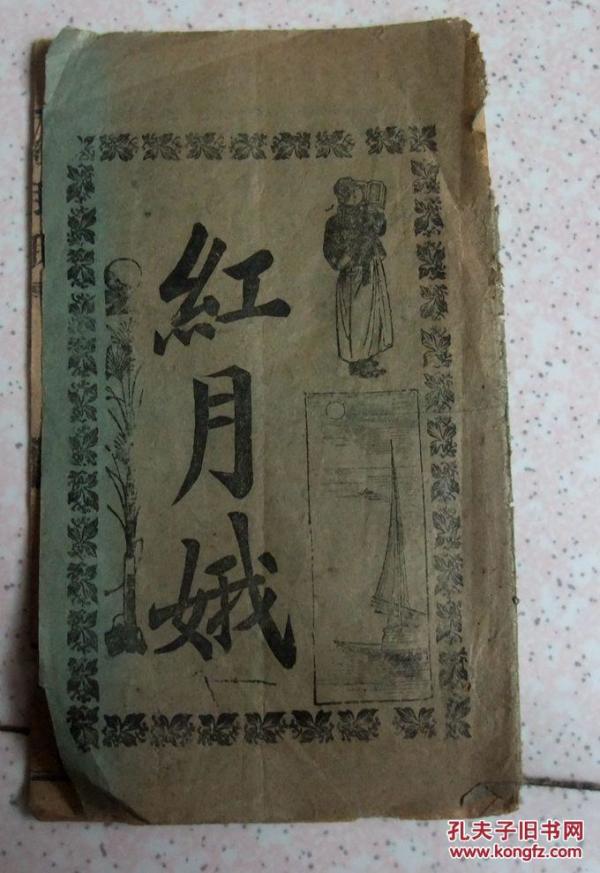 紅月娥
孔夫子旧书网
www.kongfz.com